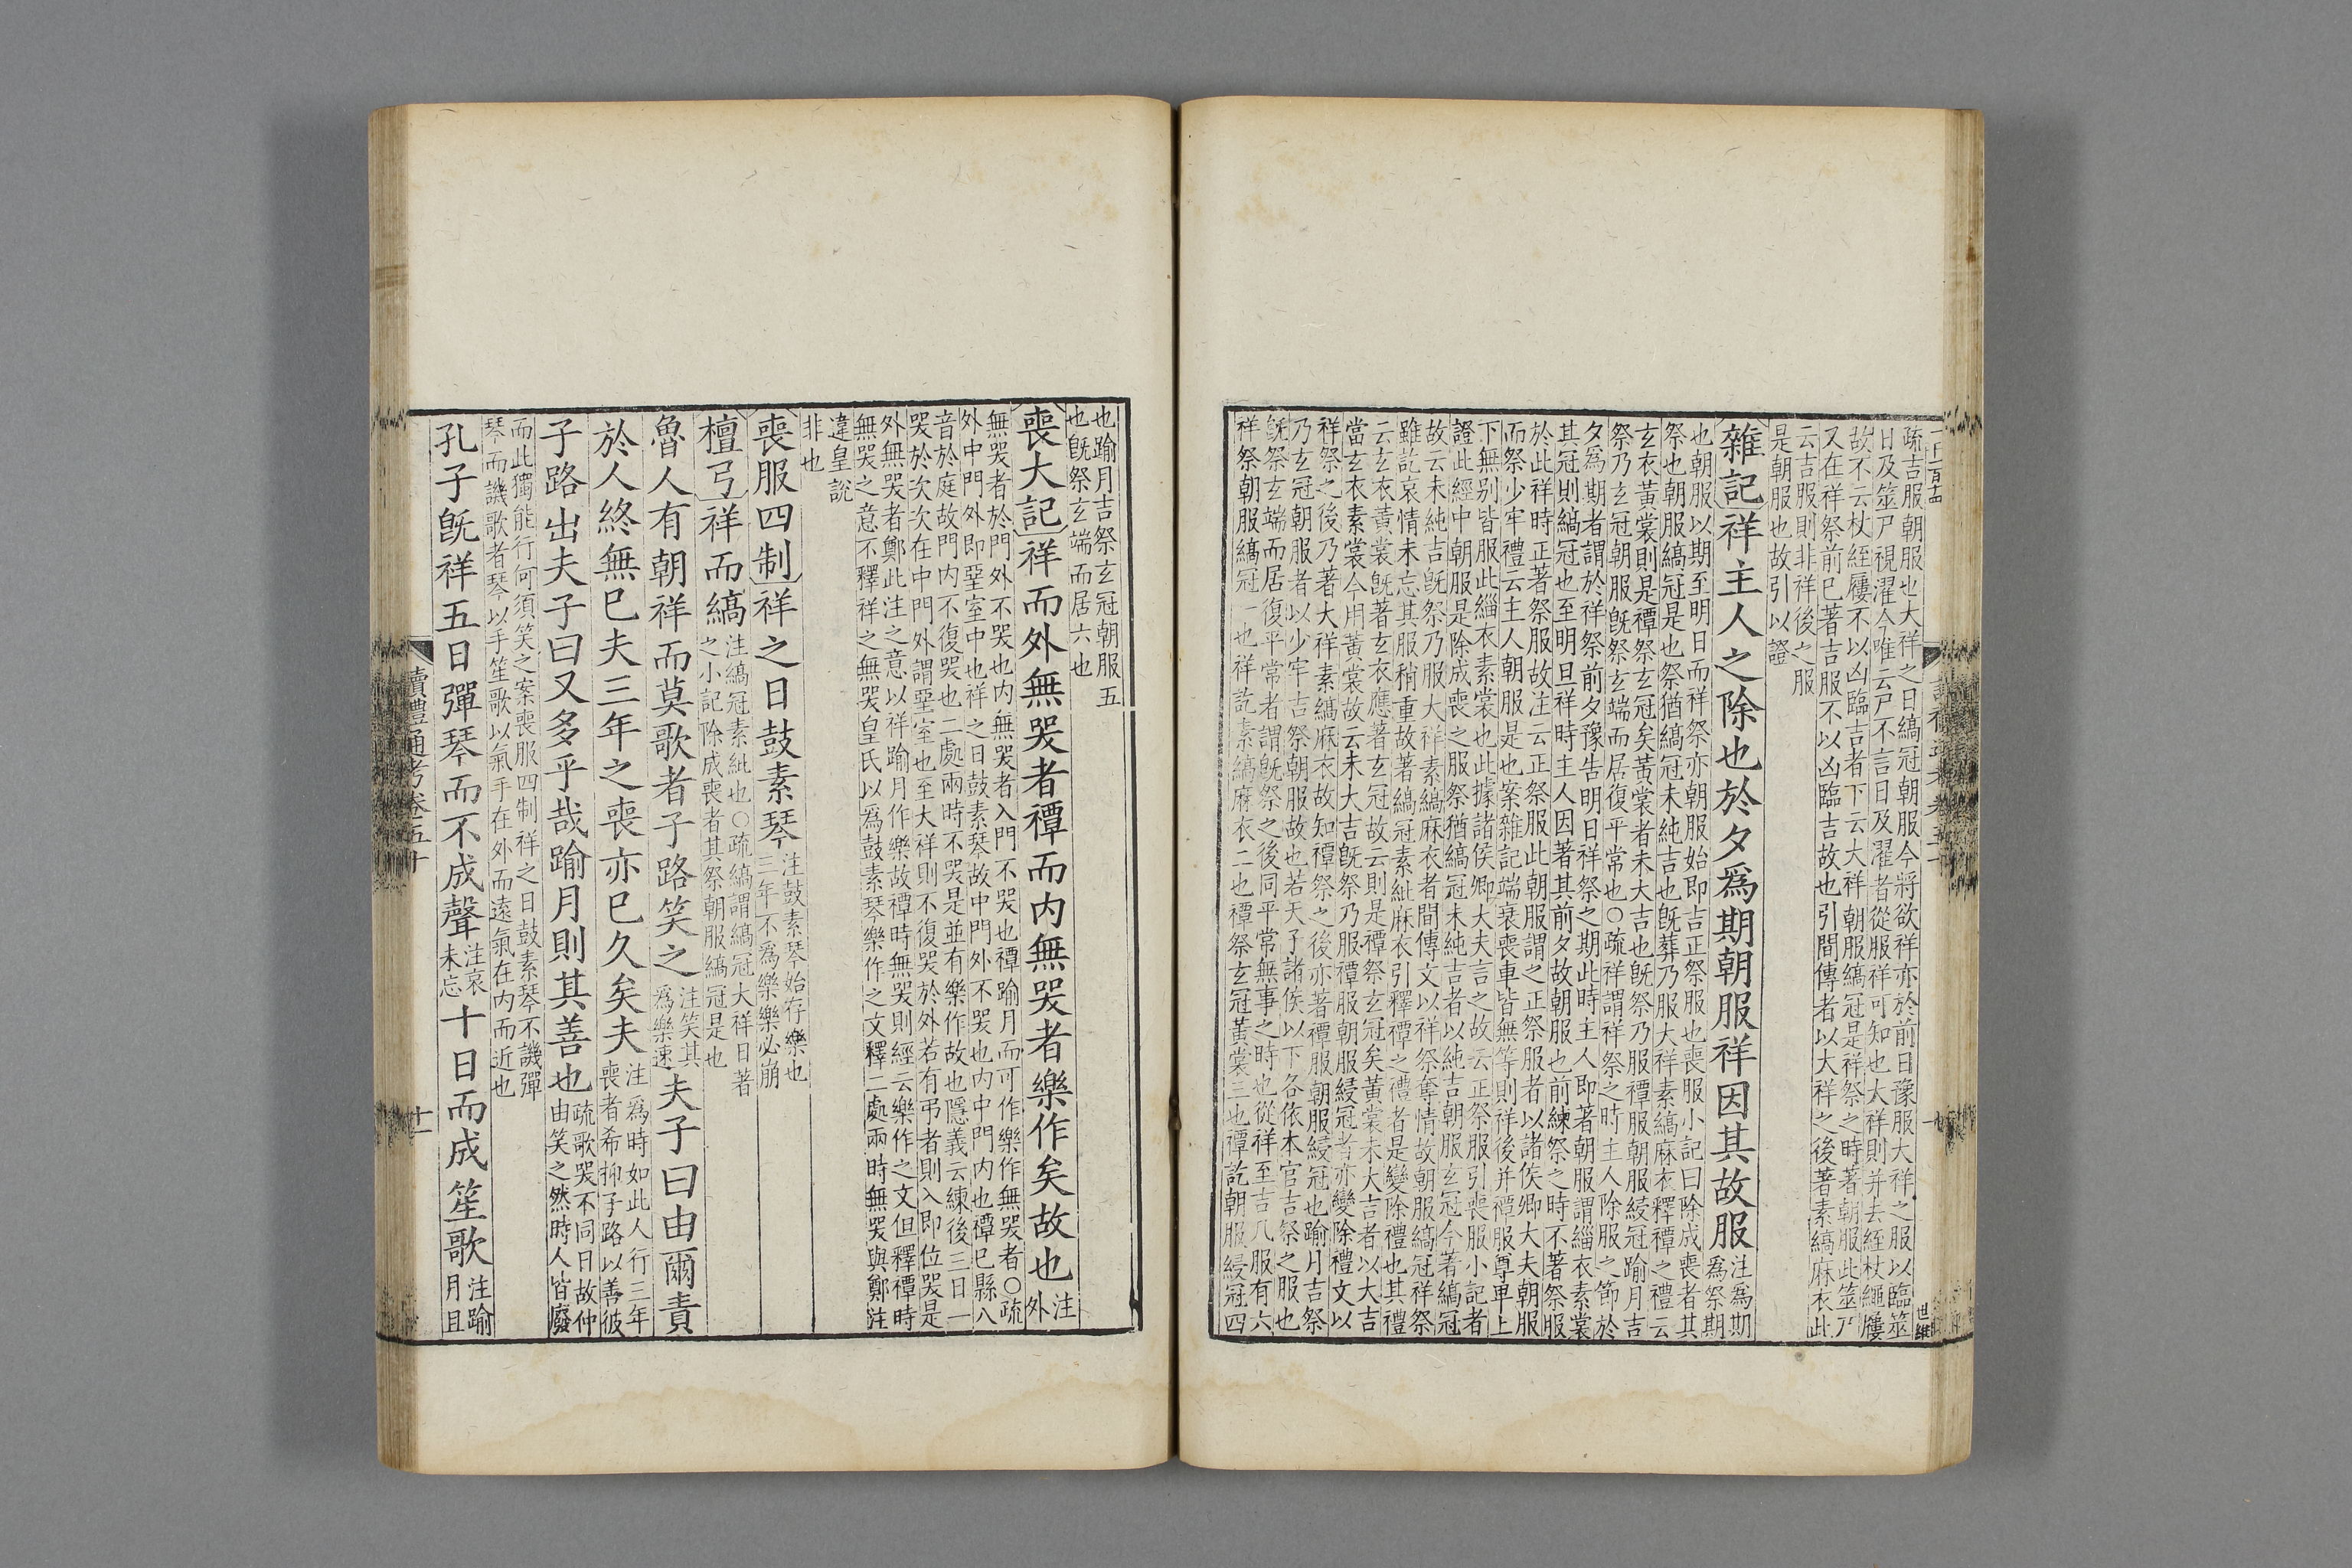 疏吉服朝服也大祥之日縞冠朝服今將欲祥亦於前日豫服大祥之服以臨筮
日及筮尸視濯今唯云尸不言日及濯者從服祥可知也大祥則并去絰杖繩屨
故不云杖絰屨不以凶臨吉者下云大祥朝服縞冠是祥祭之時著朝服此筮乃
又在祥祭前已著吉服不以凶臨吉故也引間傳者以大祥之後著素縞麻衣此
云吉服則非祥後之服
是朝服也故引以證
雜記祥主人之除也於夕爲期朝服祥因其故服注爲期
爲祭期
也朝服以期至明日而祥祭亦朝服始即吉正祭服也喪服小記曰除成喪者其
祭也朝服縞冠是也祭猶縞冠未純吉也旣葬乃服大祥素縞麻衣釋禫之禮云
玄衣黃裳則是禫祭玄冠矣黃裳者未大吉也旣祭乃服禫服朝服綅冠踰月吉
祭乃玄冠朝服旣祭玄端而居復平常也○疏祥謂祥祭之時主人除服之節於
夕爲期者謂於祥祭前夕豫告明日祥祭之期此時主人即著朝服謂緇衣素裳
其冠則縞冠也至明旦祥時主人因著其前夕故朝服也前練祭之時不著祭服
於此祥時正著祭服故注云正祭服此朝服謂之正祭服者以諸侯卿大夫朝服
而祭少牢禮云主人朝服是也案雜記端衰喪車皆無等則祥後并禫服尊卑上
下無别皆服此緇衣素裳也此據諸侯卿大夫言之故云正祭服引喪服小記者
證此經中朝服是除成喪之服祭猶縞冠未純吉者以純吉朝服玄冠今著縞冠
故云未純吉旣祭乃服大祥素縞麻衣者間傳文以祥祭奪情故朝服縞冠祥祭
雖訖哀情未忘其服稍重故著縞冠素紕麻衣引釋禫之禮者是變除禮也其禮
云玄衣黃裳旣著玄衣應著玄冠故云則是禫祭玄冠矣黃裳未大吉者以大吉
當玄衣素裳今用黃裳故云未大吉旣祭乃服禫服朝服綅冠者亦變除禮文以
祥祭之後乃著大祥素縞麻衣故知禫祭之後亦著禫服朝服綅冠也踰月吉祭
乃玄冠朝服者以少牢吉祭朝服故也若天子諸侯以下各依本官吉祭之服也
旣祭玄端而居復平常者謂旣祭之後同平常無事之時也從祥至吉凡服有六
祥祭朝服縞冠一也祥訖素縞麻衣二也禫祭玄冠黃裳三也禫訖朝服綅冠四
世維
也踰月吉祭玄冠朝服五
也旣祭玄端而居六也
喪大記祥而外無哭者禫而内無哭者樂作矣故也注
外
無哭者於門外不哭也内無哭者入門不哭也禫踰月而可作樂作無哭者○疏
外中門外即堊室中也祥之日鼓素琴故中門外不哭也内中門内也禫已縣八
音於庭故門内不復哭也二處兩時不哭是並有樂作故也隱義云練後三日一
哭於次次在中門外謂堊室也至大祥則不復哭於外若有弔者則入即位哭是
外無哭者鄭此注之意以祥踰月作樂故禫時無哭則經云樂作之文但釋禫時
無哭之意不釋祥之無哭皇氏以爲鼓素琴樂作之文釋二處兩時無哭與鄭注
違皇説
非也
喪服四制祥之日鼓素琴注鼓素琴始存樂也
三年不爲樂樂必崩
檀弓祥而縞注縞冠素紕也○疏縞謂縞冠大祥日著
之小記除成喪者其祭朝服縞冠是也
魯人有朝祥而莫歌者子路笑之注笑其
爲樂速夫子曰由爾責
於人終無已夫三年之喪亦已久矣夫注爲時如此人行三年
喪者希抑子路以善彼
子路出夫子曰又多乎哉踰月則其善也疏歌哭不同日故仲
由笑之然時人皆廢
而此獨能行何須笑之案喪服四制祥之日鼓素琴不譏彈
琴而譏歌者琴以手笙歌以氣手在外而遠氣在内而近也
孔子旣祥五日彈琴而不成聲注哀
未忘十日而成笙歌注踰
月且
讀禮通考卷五十
十一